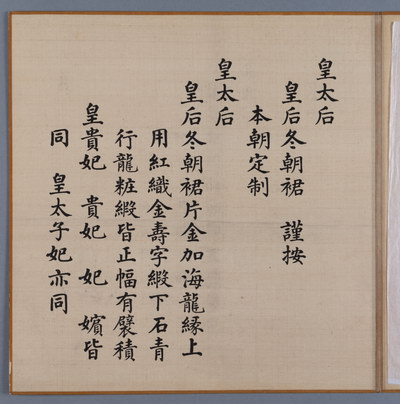 皇太后
皇后冬朝裙　謹按
本朝定制
皇太后
皇后冬朝裙片金加海龍縁上
用紅織金壽字緞下石青
行龍粧緞皆正幅有襞積
皇貴妃　貴妃　妃　嬪皆
同　皇太子妃亦同